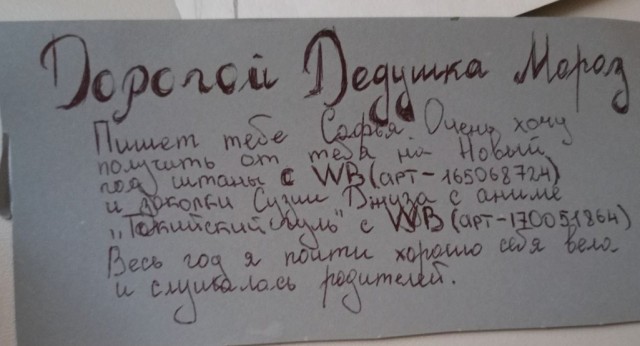 Дорогой Дедушка Мороз
Пишет тебе Софья. Очень хочу
получить от тебя на Новый
год штаны с WB (арт-165068724)
и заколки Сузии Джуза с аниме
„Токийский гуль" с WB (арт-170051864)
Весь год я почти хорошо себя вела
и слушалась родителей.